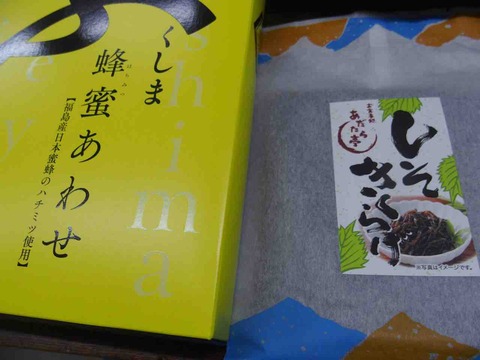 ふくしま
蜂蜜あわせ
はちみつ
【福島産日本蜜蜂のハチミツ使用】
shima
ey
あだたら亭
しそ
きくらげ
※写真はイメージです。